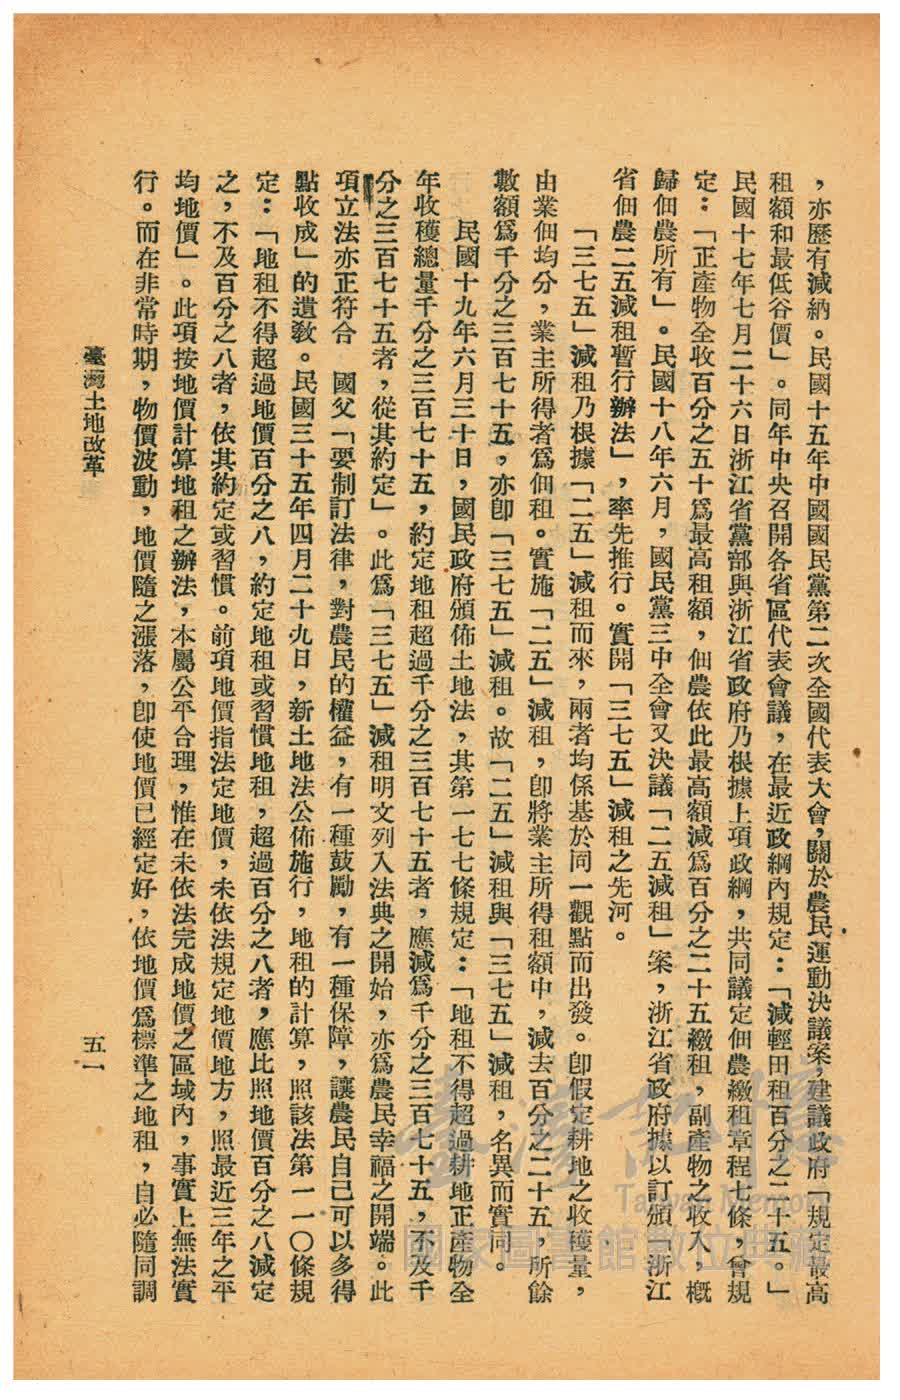 ，亦歷有減納。民國十五年中國國民黨第二次全國代表大會，關於農民運動決議案，建議政府「規定最高
租額和最低谷價」。同年中央召開各省區代表會議，在最近政綱內規定：「減輕田租百分之二十五。」
民國十七年七月二十六日浙江省黨部與浙江省政府乃根據上項政綱，共同議定佃農繳租章程七條，會規
定：「正產物全收百分之五十爲最高租額，佃農依此最高額減爲百分之二十五繳租，副產物之收入，概
歸佃農所有」。民國十八年六月，國民黨三中全會又決議「二五減租」案，浙江省政府據以訂頒「浙江
省佃農二五減租暫行辦法」，率先推行。實開「三七五」減租之先河。
「三七五」減租乃根據「二五」減租而來，兩者均係基於同一觀點而出發。卽假定耕地之收穫量，
由業佃均分，業主所得者爲佃租。實施「二五」減租，卽將業主所得租額中，減去百分之二十五，所餘
數額爲千分之三百七十五，亦卽「三七五」減租。故「二五」減租與「三七五」減租，名異而實同。
民國十九年六月三十日，國民政府頒佈土地法，其第一七七條規定：「地租不得超過耕地正產物全
年收穫總量千分之三百七十五，約定地租超過千分之三百七十五者，應減爲千分之三百七十五，不及千
分之三百七十五者，從其約定」。此爲「三七五」減租明文列入法典之開始，亦爲農民幸福之開端。此
項立法亦正符合　國父「要制訂法律，對農民的權益，有一種鼓勵，有一種保障，讓農民自己可以多得
點收成」的遺敎。民國三十五年四月二十九日，新土地法公佈施行，地租的計算，照該法第一一〇條規
定：「地租不得超過地價百分之八，約定地租或習慣地租，超過百分之八者，應比照地價百分之八減定
之，不及百分之八者，依其約定或習慣。前項地價指法定地價，未依法規定地價地方，照最近三年之平
均地價」。此項按地價計算地租之辦法，本屬公平合理，惟在未依法完成地價之區域內，事實上無法實
行。而在非常時期，物價波動，地價隨之漲落，卽使地價已經定好，依地價爲標準之地租，自必隨同調
臺灣土地改革
五一
臺灣記憶
Taiwan Memory
國家圖書館數位典藏